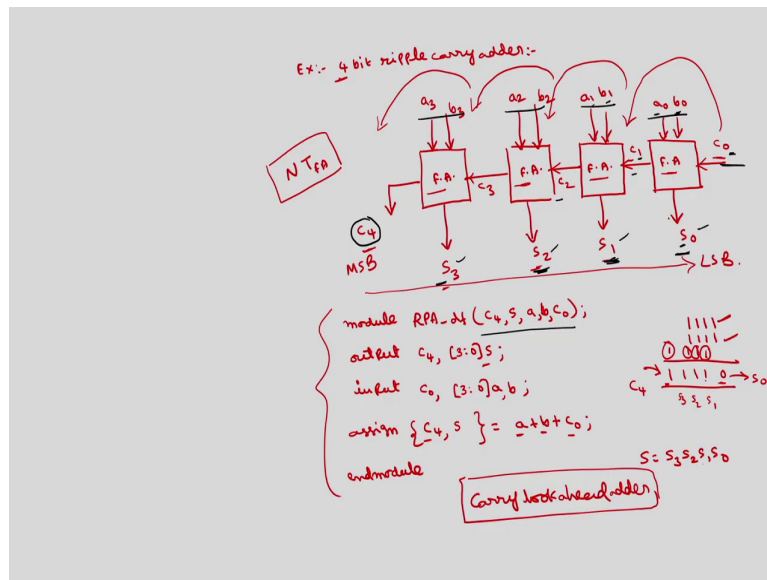 Ex:- 4 bit ripple carry adder:-
a3 b3 a2 b2 a1 b1 a0 b0
N TFA
F.A. C3 F.A. C2 F.A. C1 F.A. C0
C4
MSB
S3 S2 S1 S0
LSB.
module RPA_df (C4, S, a, b, C0);
output C4, [3:0]S;
input C0, [3:0]a, b;
assign {C4, S } = a+b+C0;
endmodule
1111
1111
1 111
C4 1 1 1 1 0 S0
S3 S2 S1
S = S3 S2 S1 S0
Carry look ahead adder